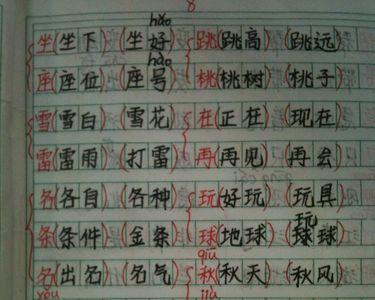 8
hǎo
坐(坐下)(坐好) 跳(跳高)(跳远)
hào
座(座位)(座号) 桃(桃树)(桃子)
雪(雪白)(雪花) 在(正在)(现在)
雷(雷雨)(打雷) 再(再见)(再会)
各(各自)(各种) 玩(好玩)(玩具)
玩
条(条件)(金条) 球(地球)(球球)
qiū
名(出名)(名气) 秋(秋天)(秋风)
yǒu